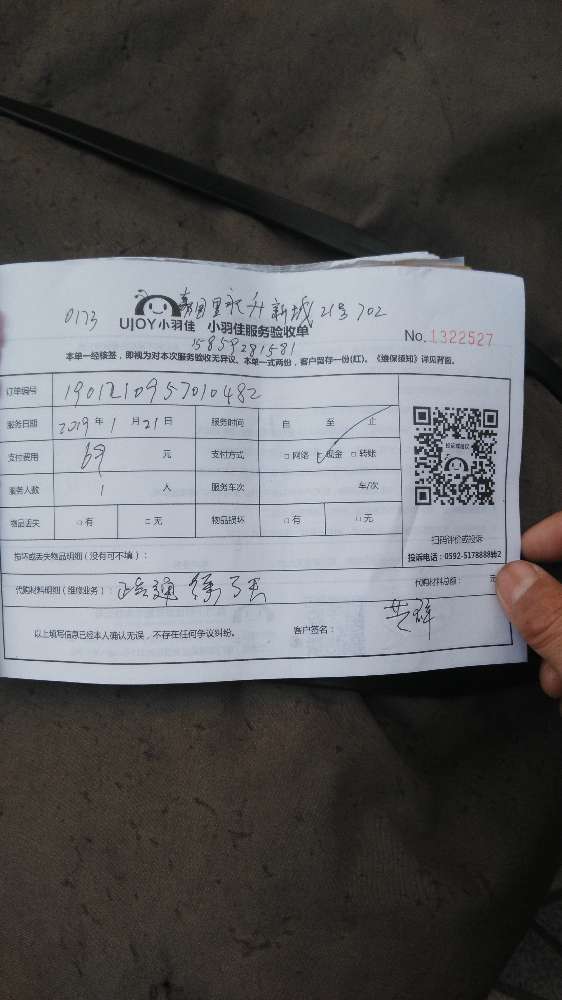 0173
永升新城21号702
UJOY小羽佳 小羽佳服务验收单
15859281581
No.1322527
本单一经核签，即视为对本次服务验收无异议、本单一式两份，客户留存一份(红)。《维保须知》详见背面。
订单编号 1901210957010482
服务日期 2019年1月21日 服务时间 自 至 止
支付费用 69元 支付方式 □网络 □现金 □转账
服务人数 1人 服务车次 车/次
物品丢失 □有 □无 物品损坏 □有 □无
扫码评价或投诉
损坏或丢失物品明细（没有可不填）：
投诉电话：0592-5178888转2
代购材料明细（维修业务）：
代购材料总额： 元
以上填写信息已经本人确认无误，不存在任何争议纠纷。 客户签名：